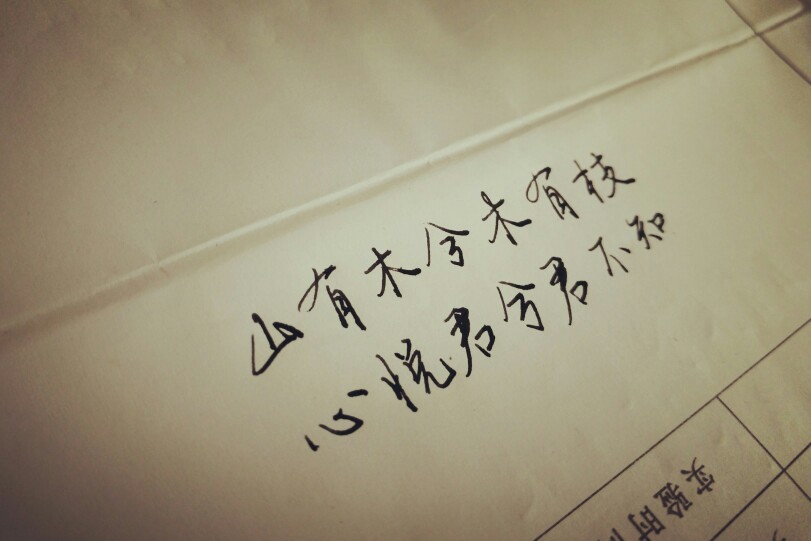 山有木兮木有枝
心悦君兮君不知
实验时